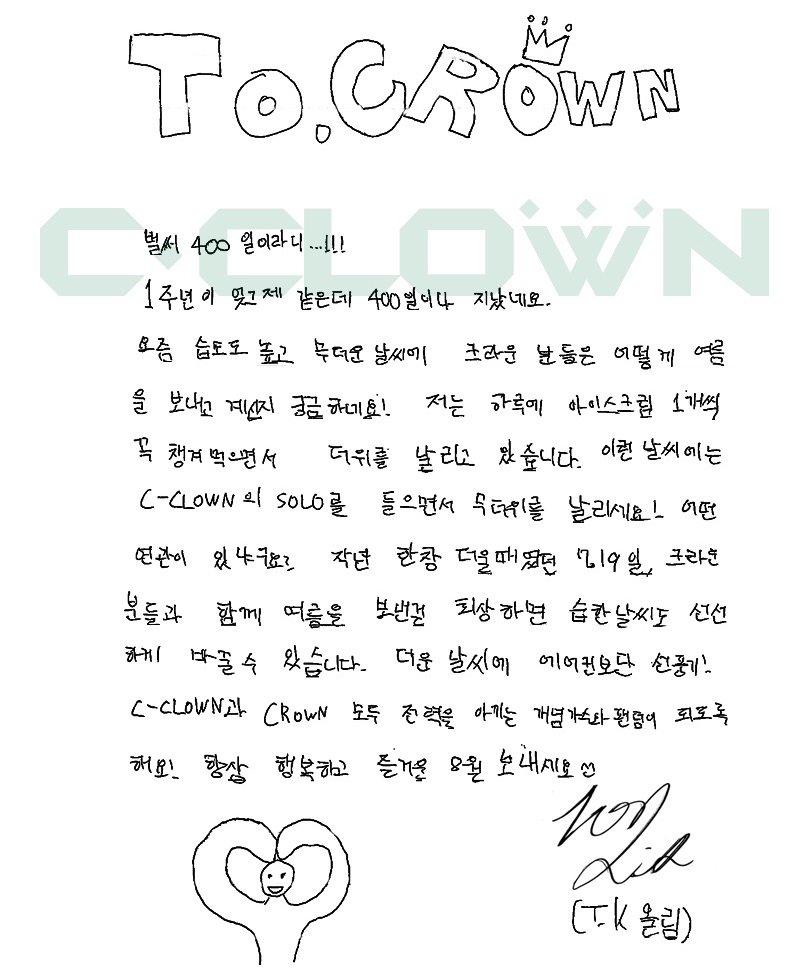 TO.CROWN
C-CLOWN
벌써 400 일이라니...!!!
1주년이 엊그제 같은데 400일이나 지났네요.
요즘 습도도 높고 무더운 날씨에 크라운 분들은 어떻게 여름
을 보내고 계신지 궁금하네요! 저는 하루에 아이스크림 1개씩
꼭 챙겨먹으면서 더위를 날리고 있습니다. 이런 날씨에는
C-CLOWN의 SOLO를 들으면서 무더위를 날리세요! 어떤
연관이 있냐구요? 작년 한창 더울때였던 7월19일, 크라운
분들과 함께 여름을 보낸걸 회상하면 습한날씨도 선선
하게 바꿀 수 있습니다. 더운 날씨에 에어컨보단 선풍기!
C-CLOWN과 CROWN 모두 전력을 아끼는 개념가수와 팬덤이 되도록
해요! 항상 행복하고 즐거운 8월 보내세요
(T.K 올림)